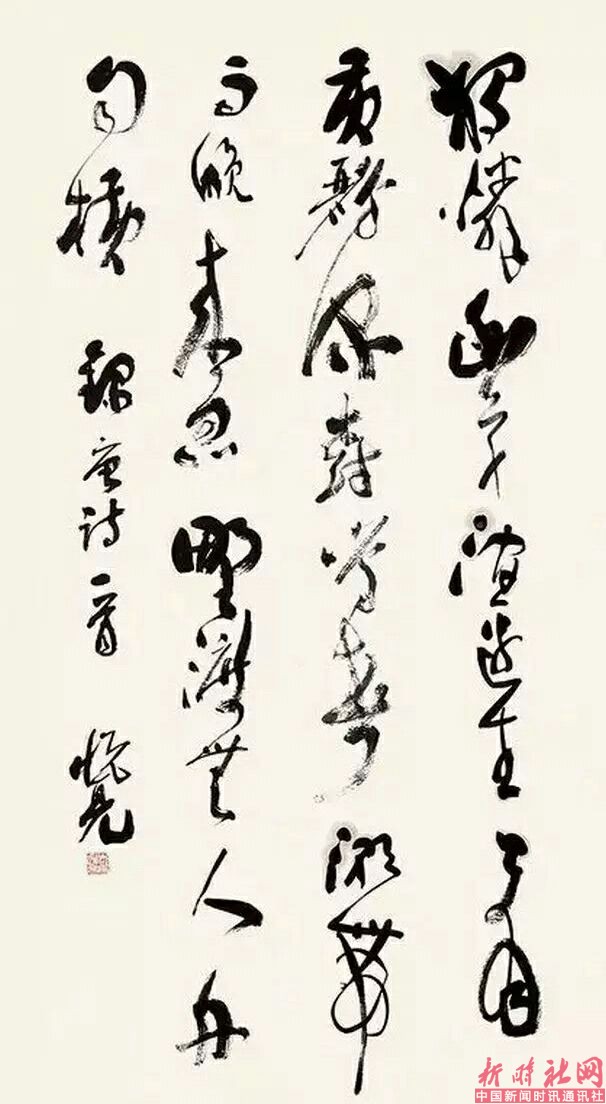 獨憐幽草澗邊生上有
黄鸝深樹鳴春潮帶
雨晚来急野渡無人舟
自横
錄唐诗一首
新時社网
中国新闻时讯通讯社